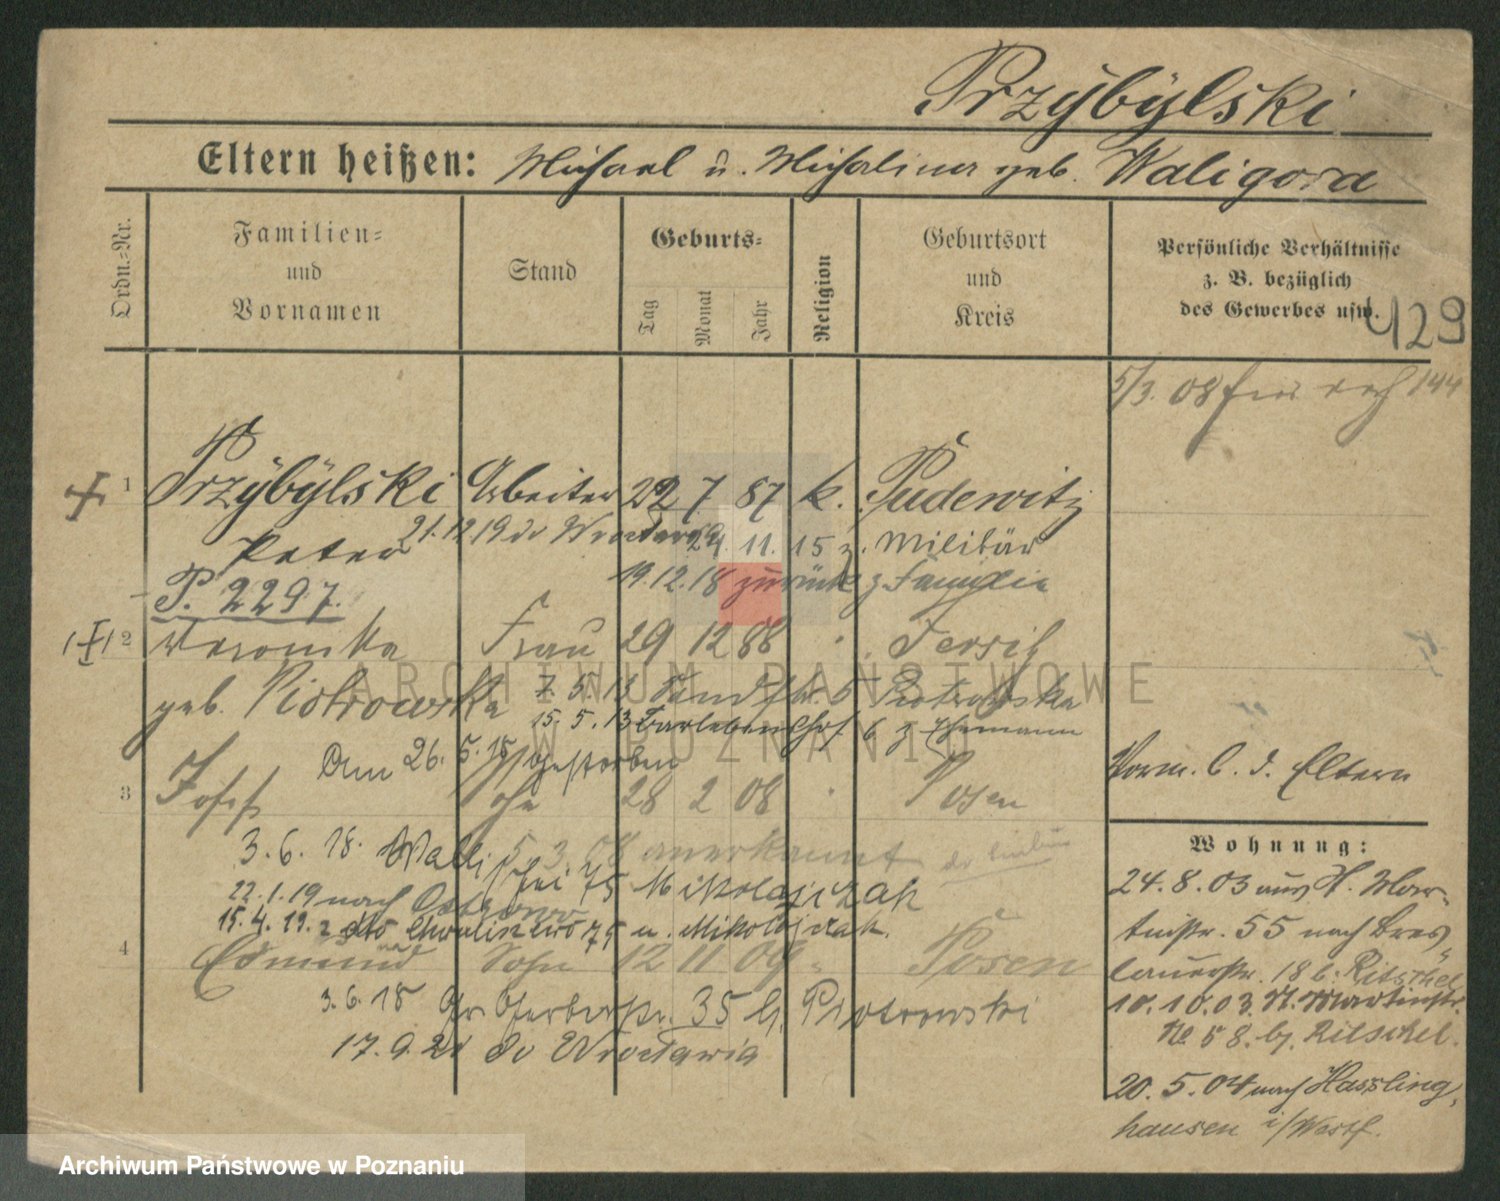 Przÿbÿlski
Eltern heißen: Michael u. Michalina geb. Waligora
Ordn.-Nr.
Familien-
und
Vornamen
Stand
Geburts-
Tag
Monat
Jahr
Religion
Geburtsort
und
Kreis
Persönliche Verhältnisse
z. B. bezüglich
des Gewerbes usw.
429
5/3. 08 144
1 Przÿbÿlski Arbeiter 22 7 87 k. Pudewitz
21.12.19 do Wrocławia
Peter 24. 11. 15 z. Militär
19.12.18 zurück z. Familie
P. 2297.
2 Veronika Frau 29 12 88 " Jersitz
geb. Piotrowska 7. 5. 13 b. Piotrowska
15. 5. 13 b. z. Ehemann
Am 26. 5. 18 gestorben
Vorm. b. d. Eltern
3 Josef Sohn 28 2 08 " Posen
3. 6. 18. Wallischei 75 Mikolajczak
5. 3. 08 anerkannt
22.1.19 nach Ostrowo
15. 4. 19. z. dto Chwaliszewo 75 u. Mikolajczak.
4 Edmund Sohn 12 11 09 " Posen
3. 6. 18 Gr. Gerberstr. 35 b. Piotrowski
17. 9. 21 do Wrocławia
Wohnung:
24. 8. 03 aus St. Mar-
tinstr. 55 nach Bres-
lauerstr. 18 b. Ritschel
10. 10. 03. St. Martinstr.
No 58. bj. Ritschel.
20. 5. 04 nach Hassling-
hausen i/Westf.
ARCHIWUM PAŃSTWOWE
W POZNANIU
Archiwum Państwowe w Poznaniu